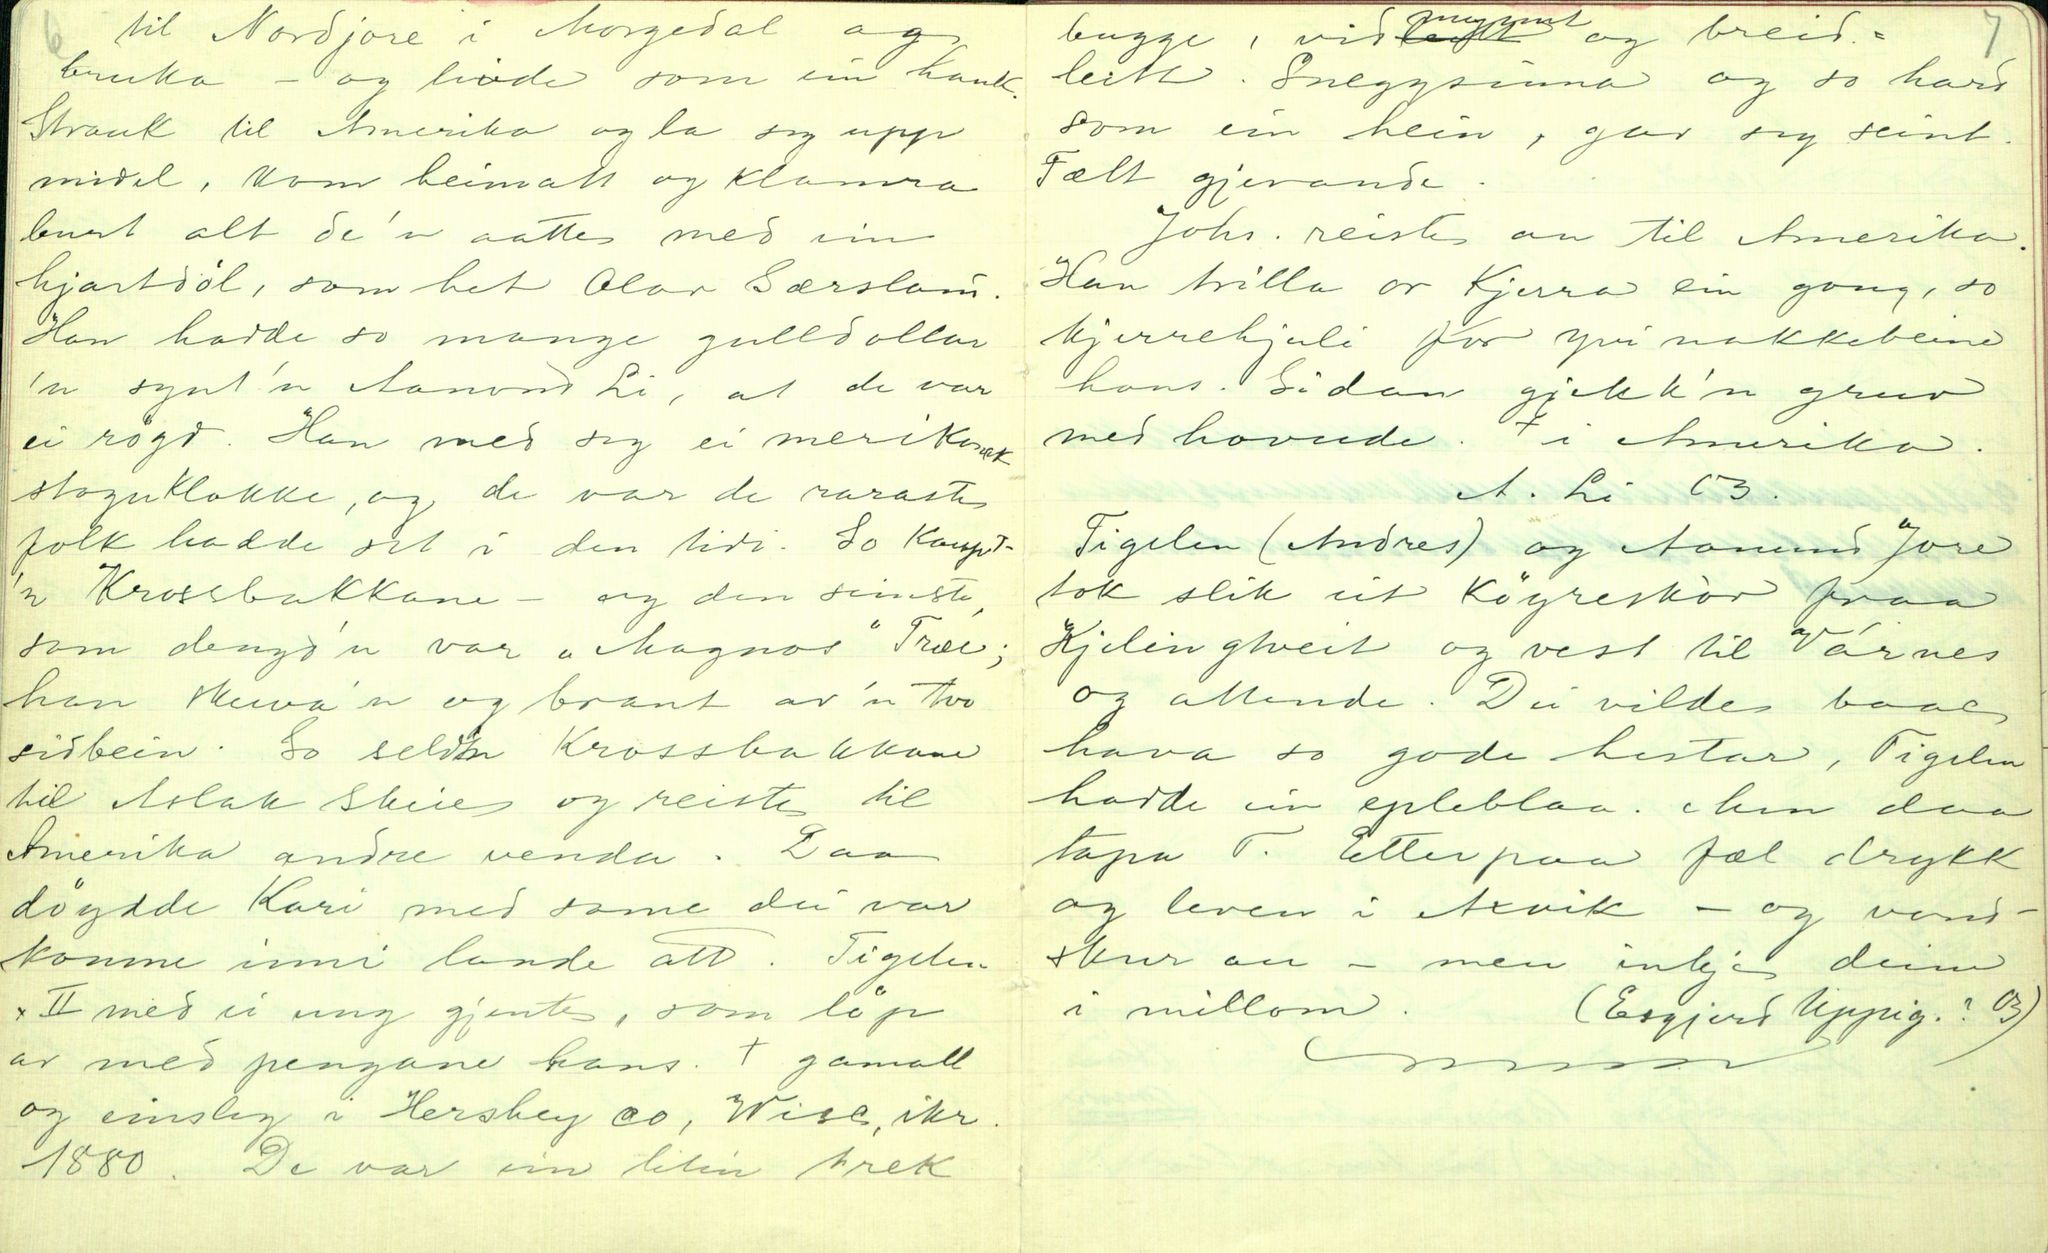 6
til Nordjore i Morgedal og
bruka – og livde som ein hauk.
Strauk til Amerika og la seg upp
midel, kom heimatt og klamra
burt alt de'n aatte med ein
hjartdöl, som het Olav Særsland.
Han hadde so mange gulldollar
'n synt'n Aanond Li, at de var
ei rögd. Han med seg ei merikansk
stoguklokke, og de var de raraste
folk hadde set i den tidi. So kaupt-
'n Krossbakkane – og den simste,
som dengd'n var "Magnos" Træe;
han skuva'n og braut av'n tvo
sidbein. So seld'n Krossbakkane
til Aslak Skeie og reiste til
Amerika andre venda. Daa
döydde Kari med same dei var
komne inni lande att. Tigelen
x II med ei ung gjente, som löp
av med pengane hans. † gamall
og einsleg i Hershey co, Wisc, ikr.
1880. De var ein liten trek
7
bugge, vid mynnt og breid-
leitt. Sneggsinna og so hard
som ein hein, gav seg seint.
Fælt gjevande.
Johs. reiste au til Amerika.
Han trilla or kjerra ein gong, so
kjerrehjuli for yvi nakkebeine
hans. Sidan gjekk'n gruv
med hovude. † i Amerika.
A. Li 03.
Tigelen (Andres) og Aanund Jore
tok slik eit köyreskòr fraa
Kjelingtveit og vest til Várnes
og attende. Dei vilde baae
hava so gode hestar, Tigelen
hadde ein epleblaa. Men daa
tapa T. Etterpaa fæl drykk
og leven i Axvik – og vond-
skur au – men inkje deim
i millom. (Esgjerd Uppig. ? 03)